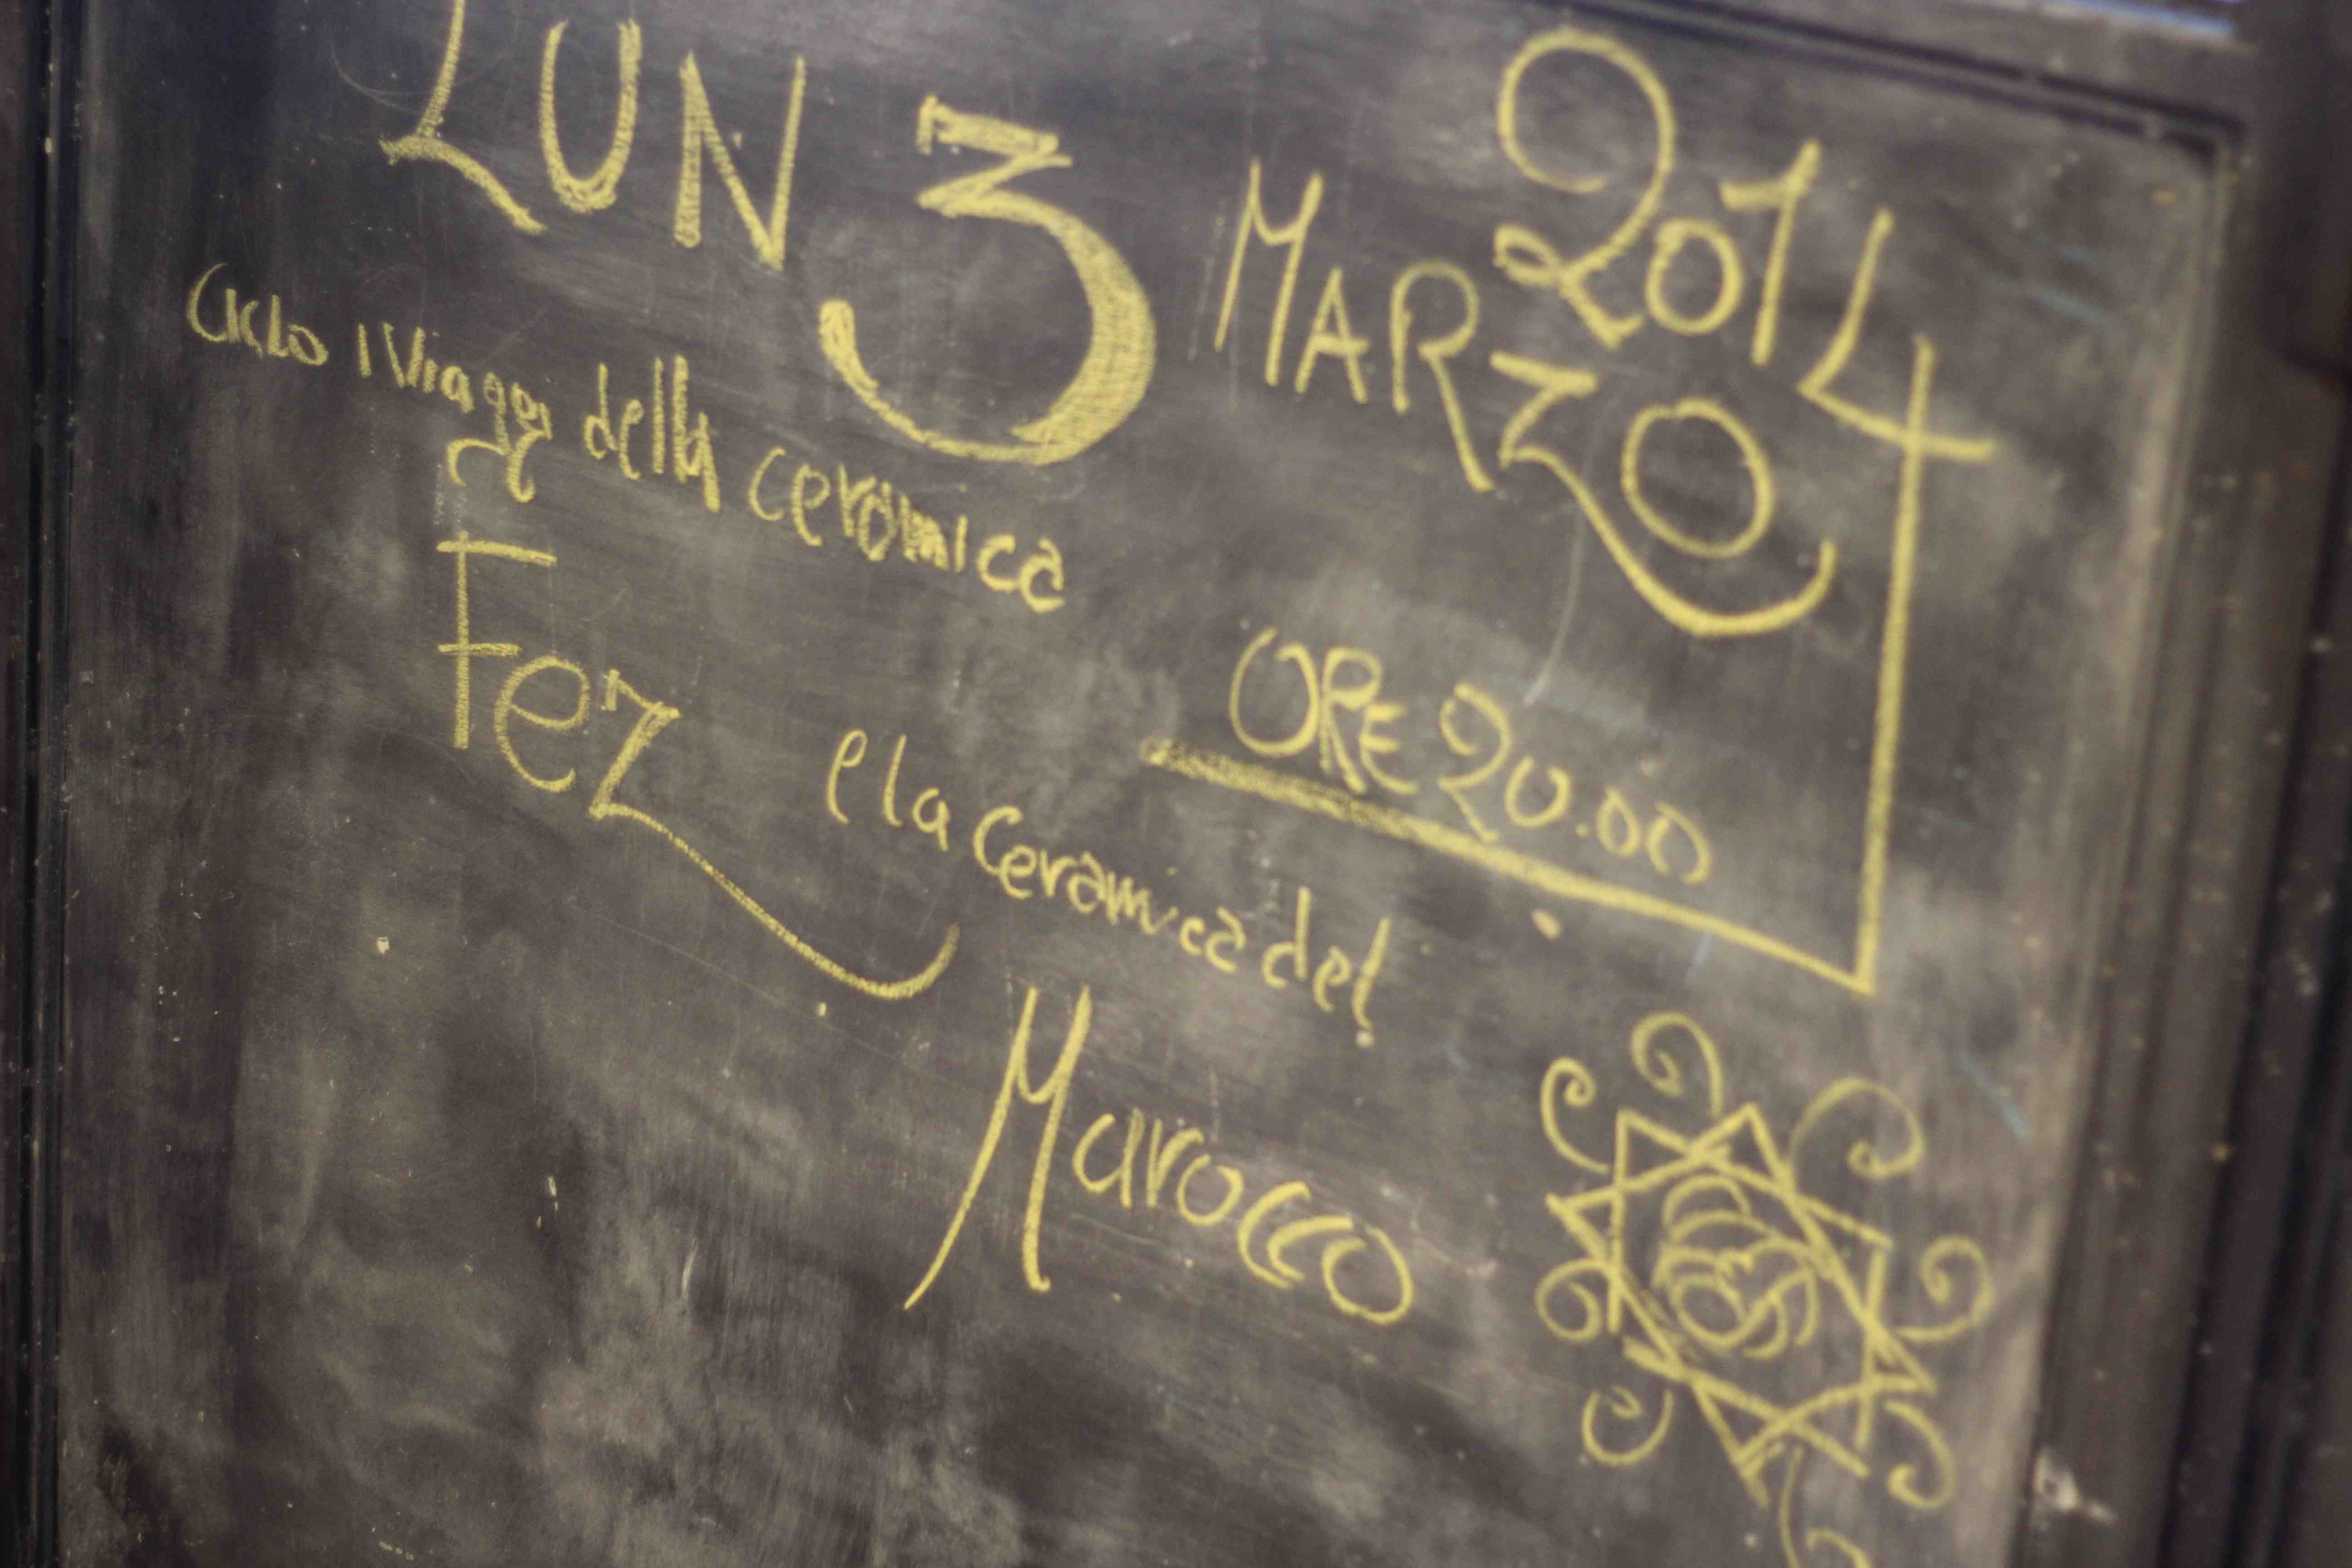 LUN 3 MARZO 2014
Ciclo i Viaggi della ceramica
ORE 20.00
Fez e la ceramica del
Marocco